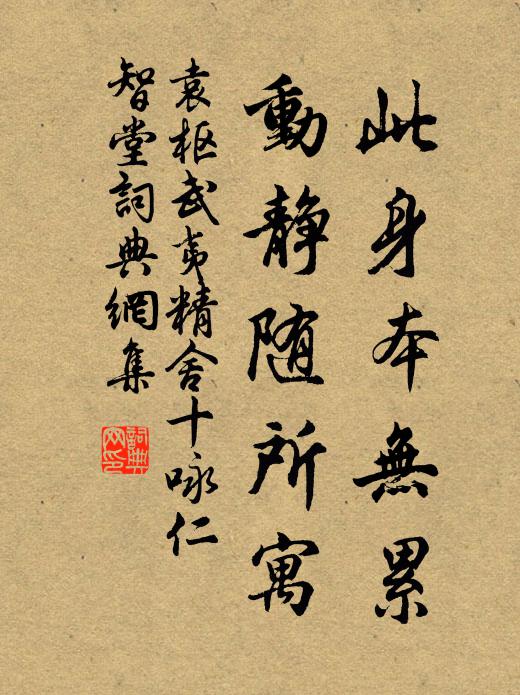 此身本無累
動静随所寓
袁枢武夷精舍十咏仁
智堂詞典網集
詞典網印